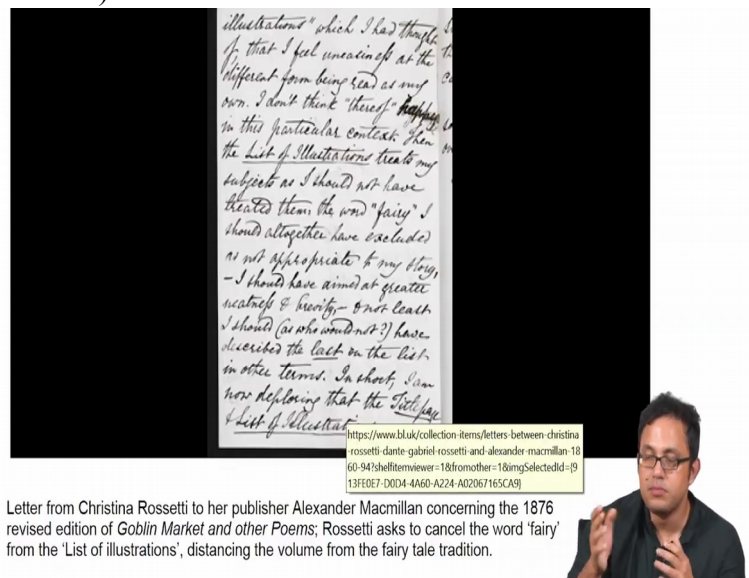 illustrations" which I had thought
of that I feel uneasiness at the
different form being read as my
own. I don't think "thereof" happy
in this particular context. Then
the List of Illustrations treats my
subjects as I should not have
treated them: the word "fairy" I
should altogether have excluded
as not appropriate to my story,
– I should have aimed at greater
neatness & brevity, – & not least
I should (as who would not?) have
described the last on the list
in other terms. In short, I am
now deploring that the Titlepage
& List of Illustrati
https://www.bl.uk/collection-items/letters-between-christina
-rossetti-dante-gabriel-rossetti-and-alexander-macmillan-18
60-94?shelfitemviewer=1&fromother=1&imgSelectedId={9
13FE0E7-D0D4-4A60-A224-A02067165CA9}
Letter from Christina Rossetti to her publisher Alexander Macmillan concerning the 1876
revised edition of Goblin Market and other Poems; Rossetti asks to cancel the word ‘fairy’
from the ‘List of illustrations’, distancing the volume from the fairy tale tradition.